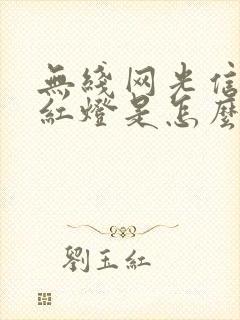 無綫网光信
紅燈是怎麼
劉玉紅